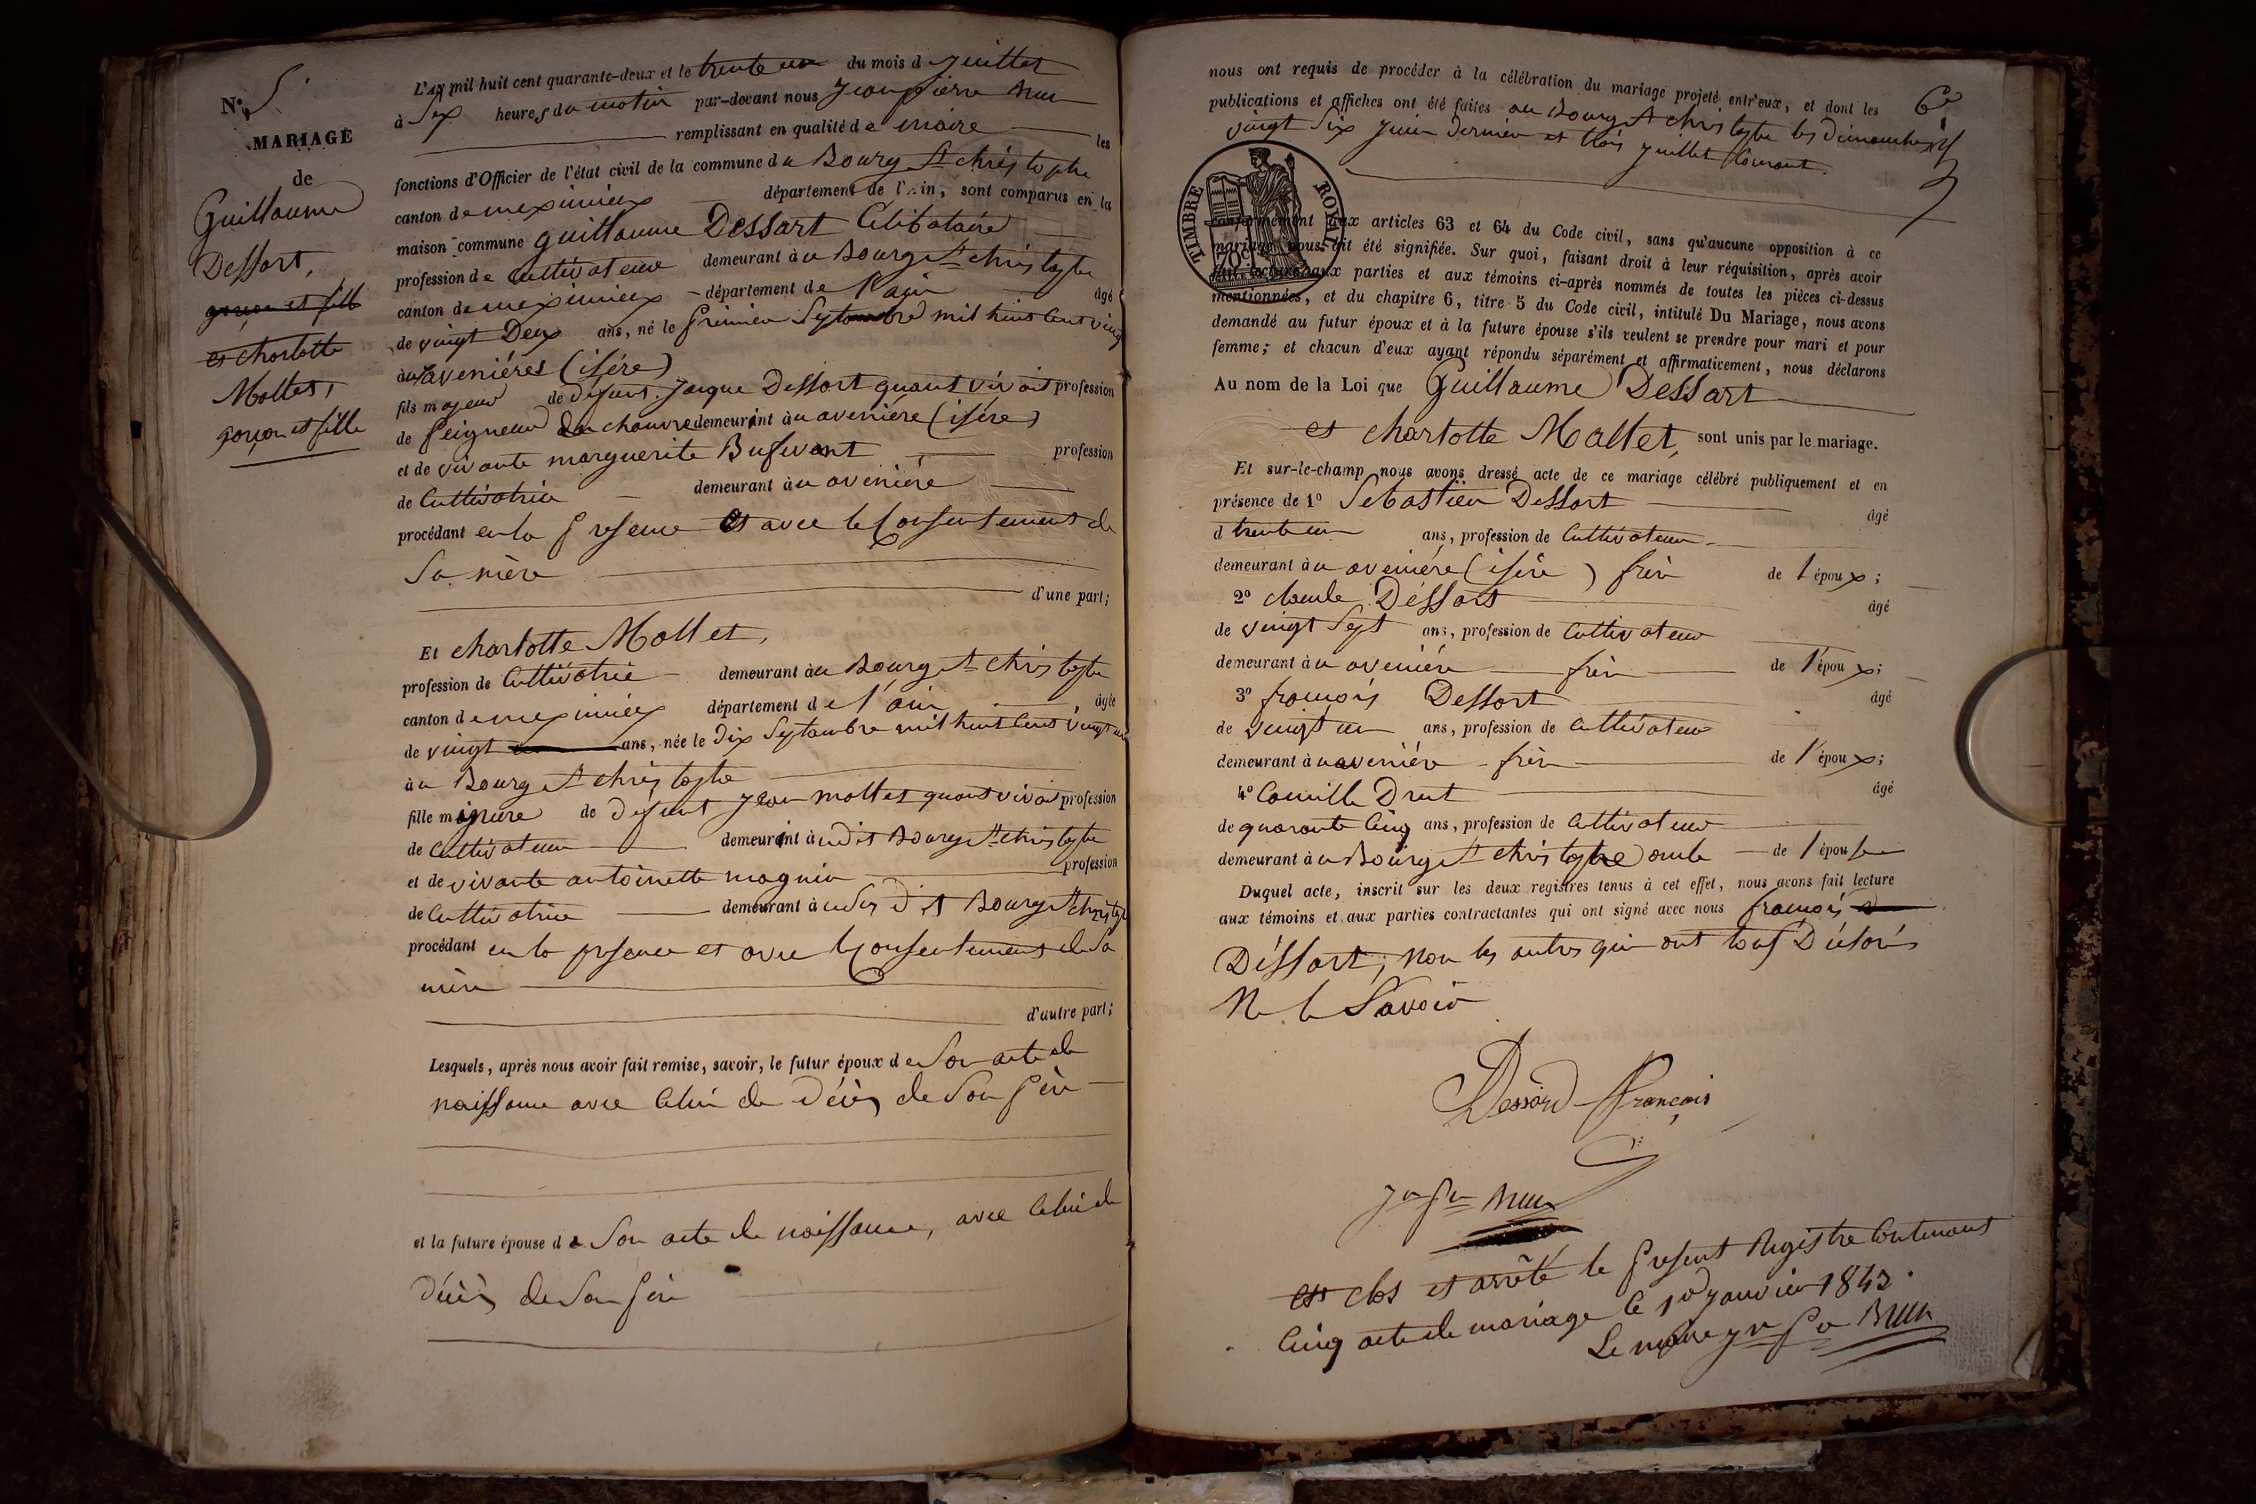 N.° 5.
MARIAGE
de
Guillaume
Dessart,
garçon et fille
et charlotte
Mollet,
garçon et fille
L'an mil huit cent quarante-deux et le trente un du mois d juillet
à Six heures du matin par-devant nous Jean pierre Brun
remplissant en qualité de maire les
fonctions d'Officier de l'état civil de la commune du Bourg St christophe
canton de meximieux département de l'Ain, sont comparus en la
maison commune guillaume Dessart Célibataire
profession de Cultivateur demeurant à u Bourg St christophe
canton de meximieux département de l'ain âgé
de vingt Deux ans, né le premier Septembre mil huit Cent vingt
aux avenières (isére)
fils majeur de defunt Jacque Dessart quant vivoit profession
de peigneur de chanvre demeurant à u aveniére (isére)
et de vivante marguerite Bufevant profession
de Cultivatrice demeurant à u aveniére
procédant en la presence et avec le Consentement de
Sa mère
d'une part;
Et charlotte Mollet,
profession de Cultivatrice demeurant à u Bourg St christophe
canton de meximieux département de l'ain âgée
de vingt ans, née le dix Septembre mil huit Cent vingt un
à u Bourg St christophe
fille mineure de defunt Jean mollet quant vivoit profession
de Cultivateur demeurant à udit Bourg St christophe
et de vivante antoinette magnin profession
de Cultivatrice demeurant à usus dit Bourg St christophe
procédant en la presence et avec le Consentement de Sa
mère
d'autre part;
Lesquels, après nous avoir fait remise, savoir, le futur époux de Son acte de
naissance avec Celui de Décès de Son père
et la future épouse de Son acte de naissance, avec Celui de
Décès de Son père
nous ont requis de procéder à la célébration du mariage projeté entr'eux, et dont les
publications et affiches ont été faites au Bourg St christophe les dimanches
vingt Six Juin dernier et trois juillet Courant.
6e
TIMBRE ROYAL
70c
conformément aux articles 63 et 64 du Code civil, sans qu'aucune opposition à ce
mariage nous ait été signifiée. Sur quoi, faisant droit à leur réquisition, après avoir
fait lecture aux parties et aux témoins ci-après nommés de toutes les pièces ci-dessus
mentionnées, et du chapitre 6, titre 5 du Code civil, intitulé Du Mariage, nous avons
demandé au futur époux et à la future épouse s'ils veulent se prendre pour mari et pour
femme; et chacun d'eux ayant répondu séparément et affirmativement, nous déclarons
Au nom de la Loi que Guillaume Dessart
et charlotte Mollet, sont unis par le mariage.
Et sur-le-champ nous avons dressé acte de ce mariage célébré publiquement et en
présence de 1° Sebastien Dessart âgé
d trente un ans, profession de Cultivateur
demeurant à u aveniére (isére) frère de l époux;
2° claude Déssart âgé
de vingt Sept ans, profession de Cultivateur
demeurant à u aveniére frère de l'époux;
3° françois Dessart âgé
de vingt un ans, profession de Cultivateur
demeurant à u aveniére frère de l'époux;
4° Camille Drut âgé
de quarante Cinq ans, profession de Cultivateur
demeurant à u Bourg St christophe oncle de l épouse
Duquel acte, inscrit sur les deux registres tenus à cet effet, nous avons fait lecture
aux témoins et aux parties contractantes qui ont signé avec nous françois
Déssart, non les autres qui ont tous Déclarés
Ne le Savoir
Dessard François
Jn pre Brun
est clos et arrêté le present Registre Contenant
Cinq acte de mariage le 1er Janvier 1843.
Le maire Jn pre Brun